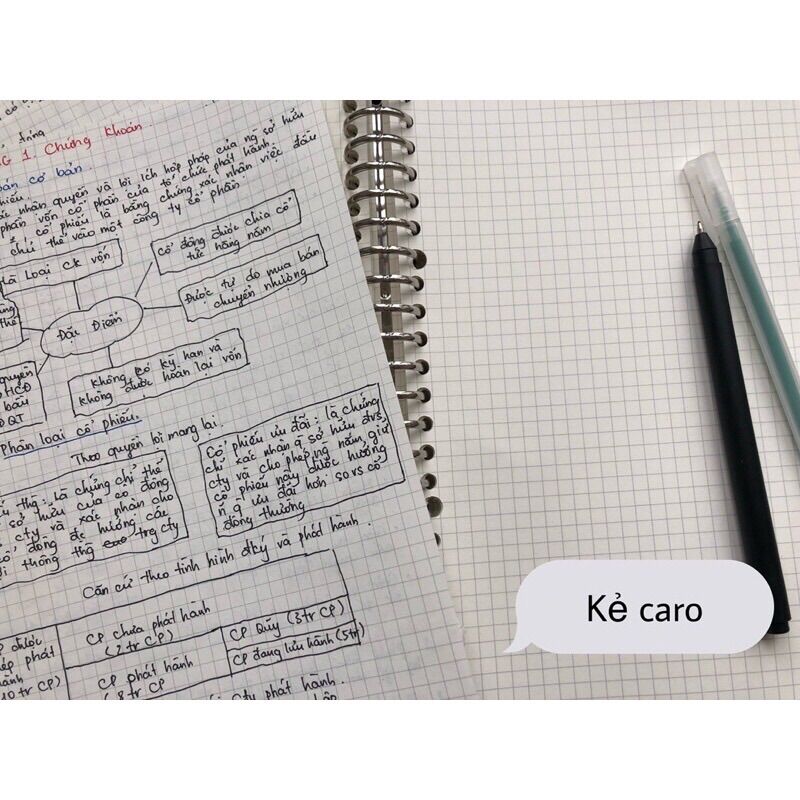 G 1. Chứng khoán
bán cơ bản
nhận quyền và lợi ích hợp pháp của ng sở hữu
phần vốn cổ phần của tổ chức phát hành
cổ phiếu là bằng chứng xác nhận việc đầu
chủ thể vào một công ty cổ phần
Là Loại CK vốn
Cổ đông được chia cổ
tức hằng năm
Đặc Điểm
Được tự do mua bán
chuyển nhượng
Không có kỳ hạn và
không được hoàn lại vốn
Phân loại cổ phiếu.
Theo quyền lợi mang lại.
thg: là chứng chỉ thể
sở hữu của cổ đông
cty và xác nhận cho
cổ đông đc hưởng các
thông thg trg cty
Cổ phiếu ưu đãi: là chứng
chỉ xác nhận q sở hữu đvs
cty và cho phép ng nắm giữ
cổ phiếu này được hưởng
n q ưu đãi hơn so vs cổ
đông thường
Căn cứ theo tình hình đký và phát hành.
CP được
phép phát
hành
10 tr CP)
CP chưa phát hành
(2 tr CP)
CP phát hành
(8 tr CP
CP Quỹ (3 tr CP)
CP đang lưu hành (5 tr)
cty phát hành.
Kẻ caro